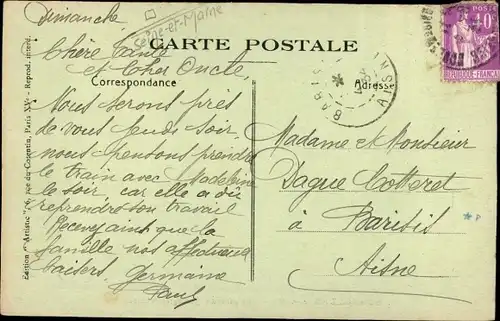 Dimanche
Seine-et-Marne
CARTE POSTALE
Chère Tante
et Cher Oncle,
Correspondance
Adresse
Nous serons près
de vous jeudi soir,
nous pensons prendre
le train avec Madeleine
le soir car elle a dû
reprendre son travail
Recevez ainsi que la
famille nos affectueux
baisers.
Germaine
Paul
Madame et Monsieur
Dague Cotteret
à Barisis
Aisne
AISNE
POSTES
40c
REPUBLIQUE FRANÇAISE
rue du Cotentin, Paris XVe - Reprod. interd.